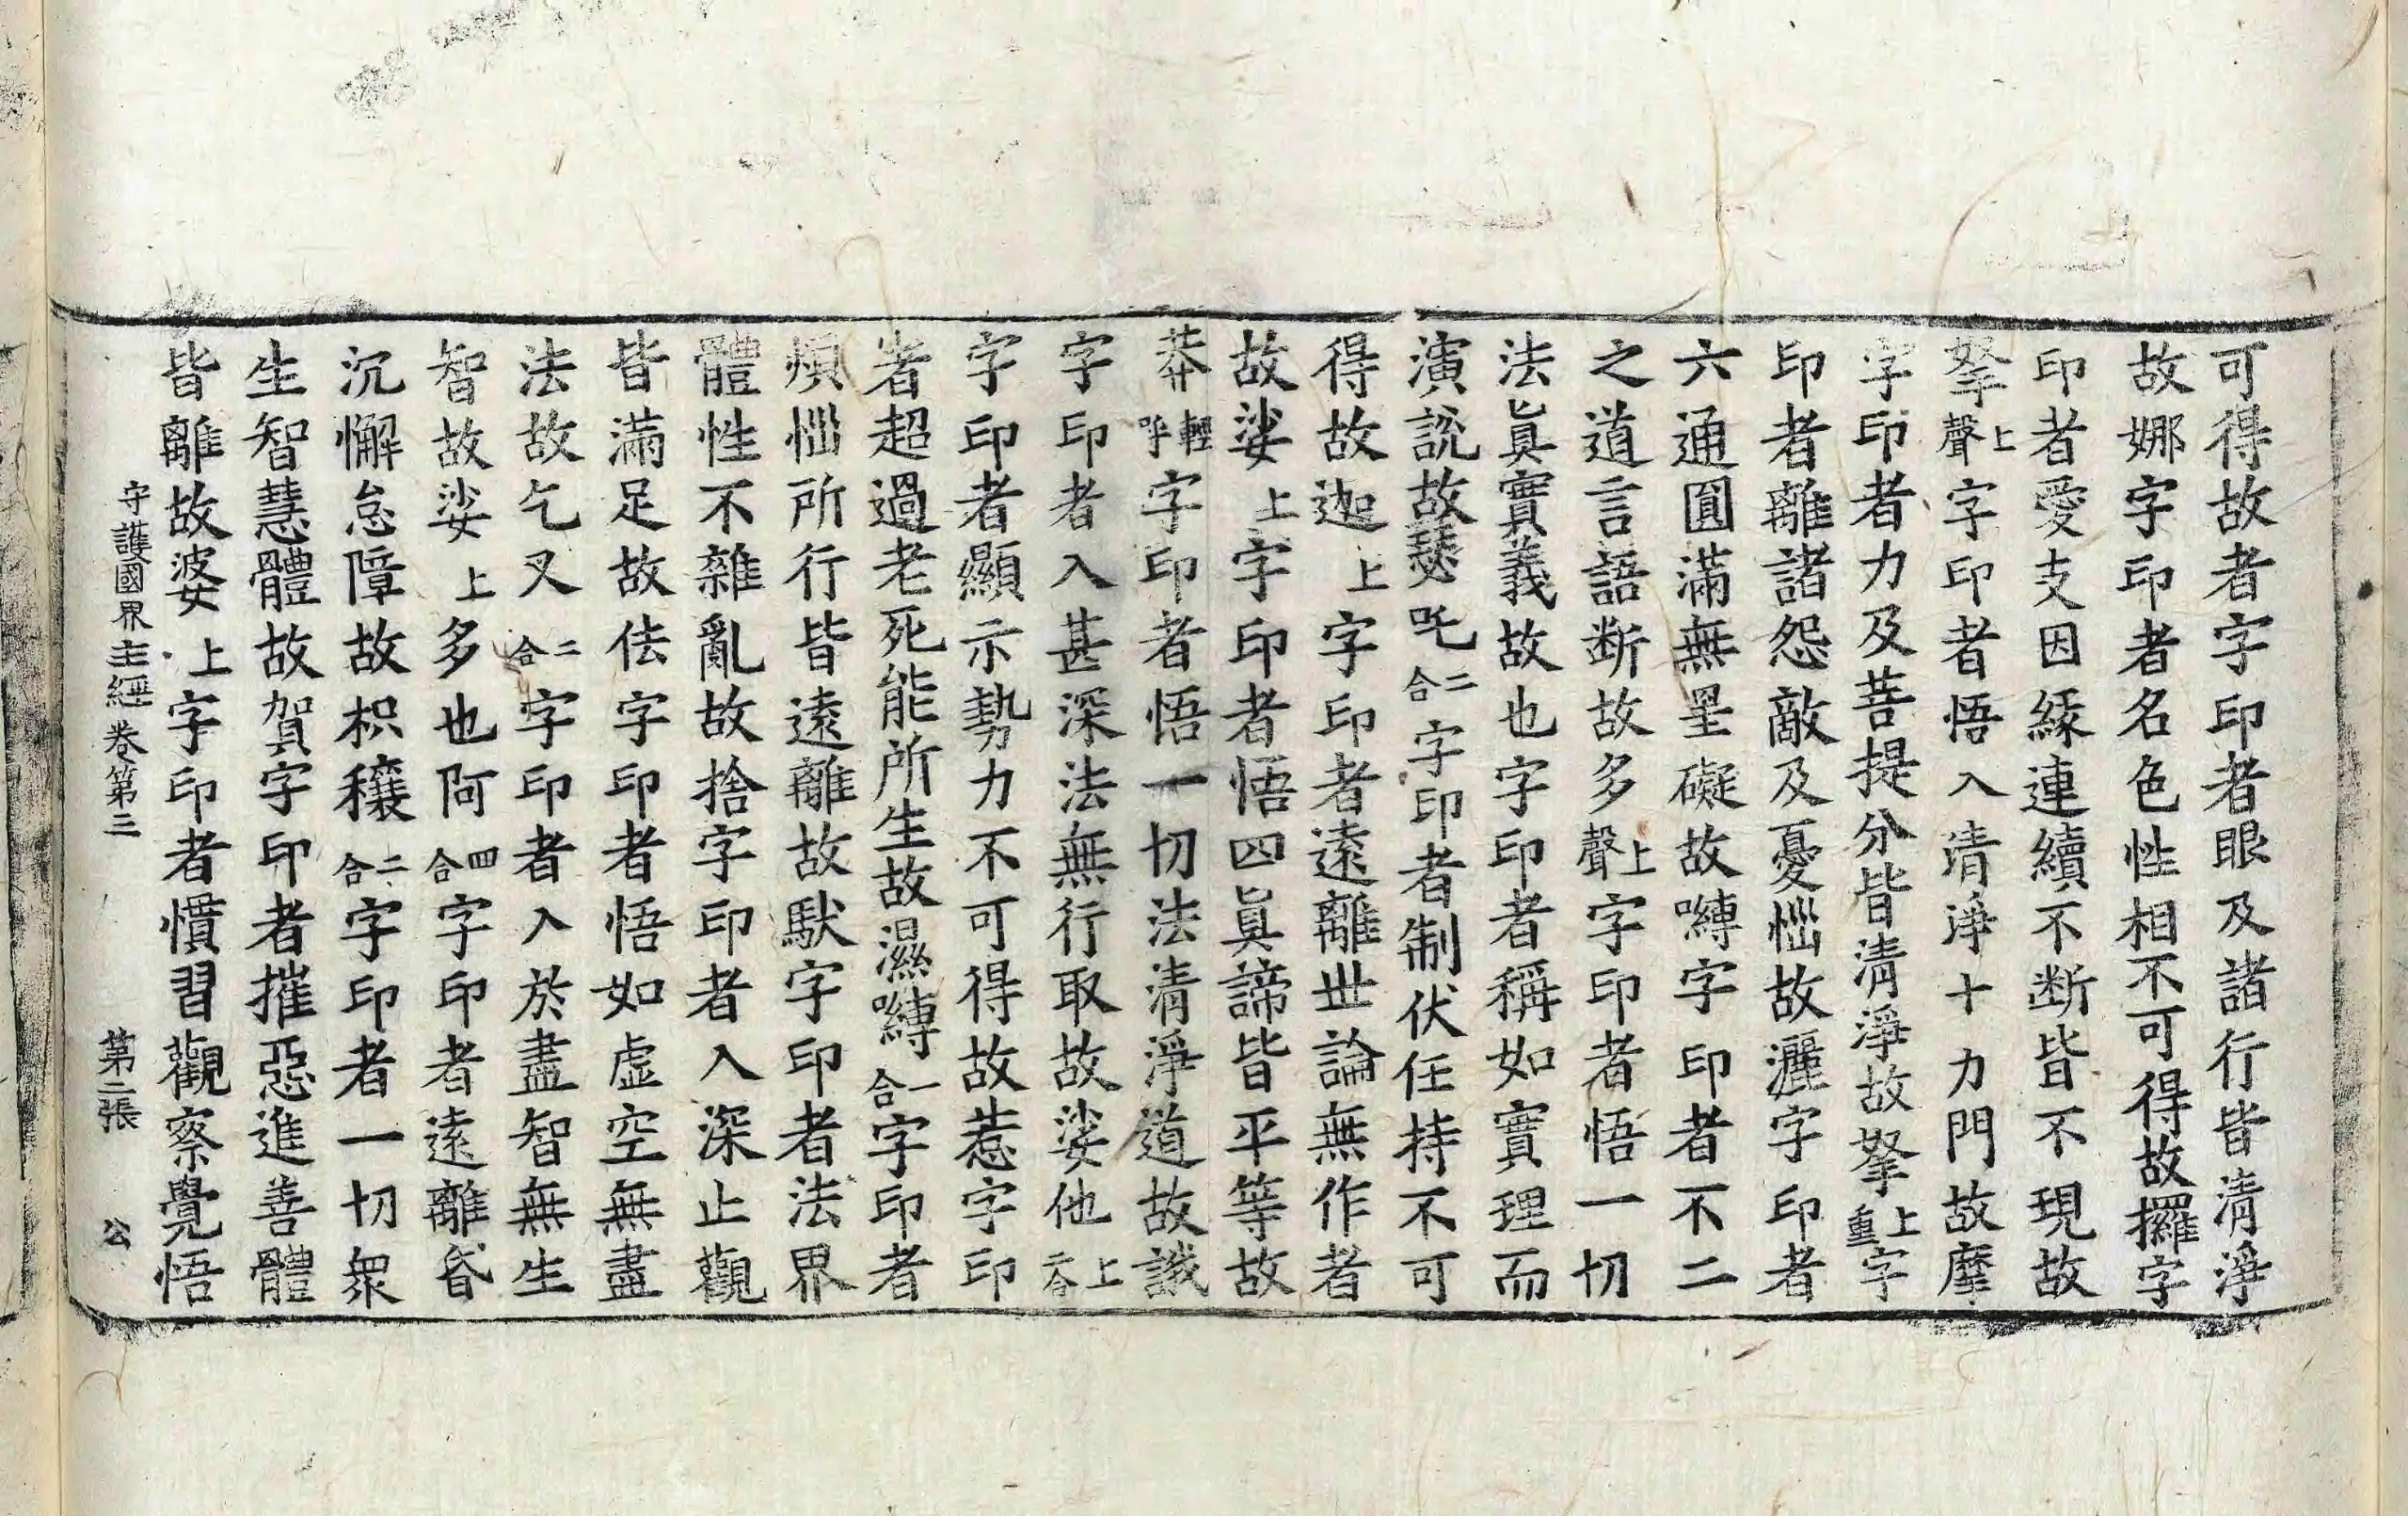 可得故者字印者眼及諸行皆清淨
故娜字印者名色性相不可得故攞字
印者愛支因緣連續不斷皆不現故
拏上聲字印者悟入清淨十力門故麼
字印者力及菩提分皆清淨故拏上重字
印者離諸怨敵及憂惱故灑字印者
六通圓滿無罣礙故嚩字印者不二
之道言語断故多上聲字印者悟一切
法眞實義故也字印者稱如實理而
演説故瑟吒二合字印者制伏任持不可
得故迦上字印者遠離世論無作者
故娑上字印者悟四眞諦皆平等故
莽輕呼字印者悟一切法清淨道故誐
字印者入甚深法無行取故娑他上二合
字印者顯示勢力不可得故惹字印
者超過老死能所生故濕嚩二合字印者
煩惱所行皆遠離故馱字印者法界
體性不雜亂故捨字印者入深止觀
皆滿足故佉字印者悟如虛空無盡
法故乞叉二合字印者入於盡智無生
智故娑上多也阿四合字印者遠離昏
沉懈怠障故枳穰二合字印者一切衆
生智慧體故賀字印者摧惡進善體
皆離故婆上字印者慣習觀察覺悟
守護國界主經卷第三 第二張 公